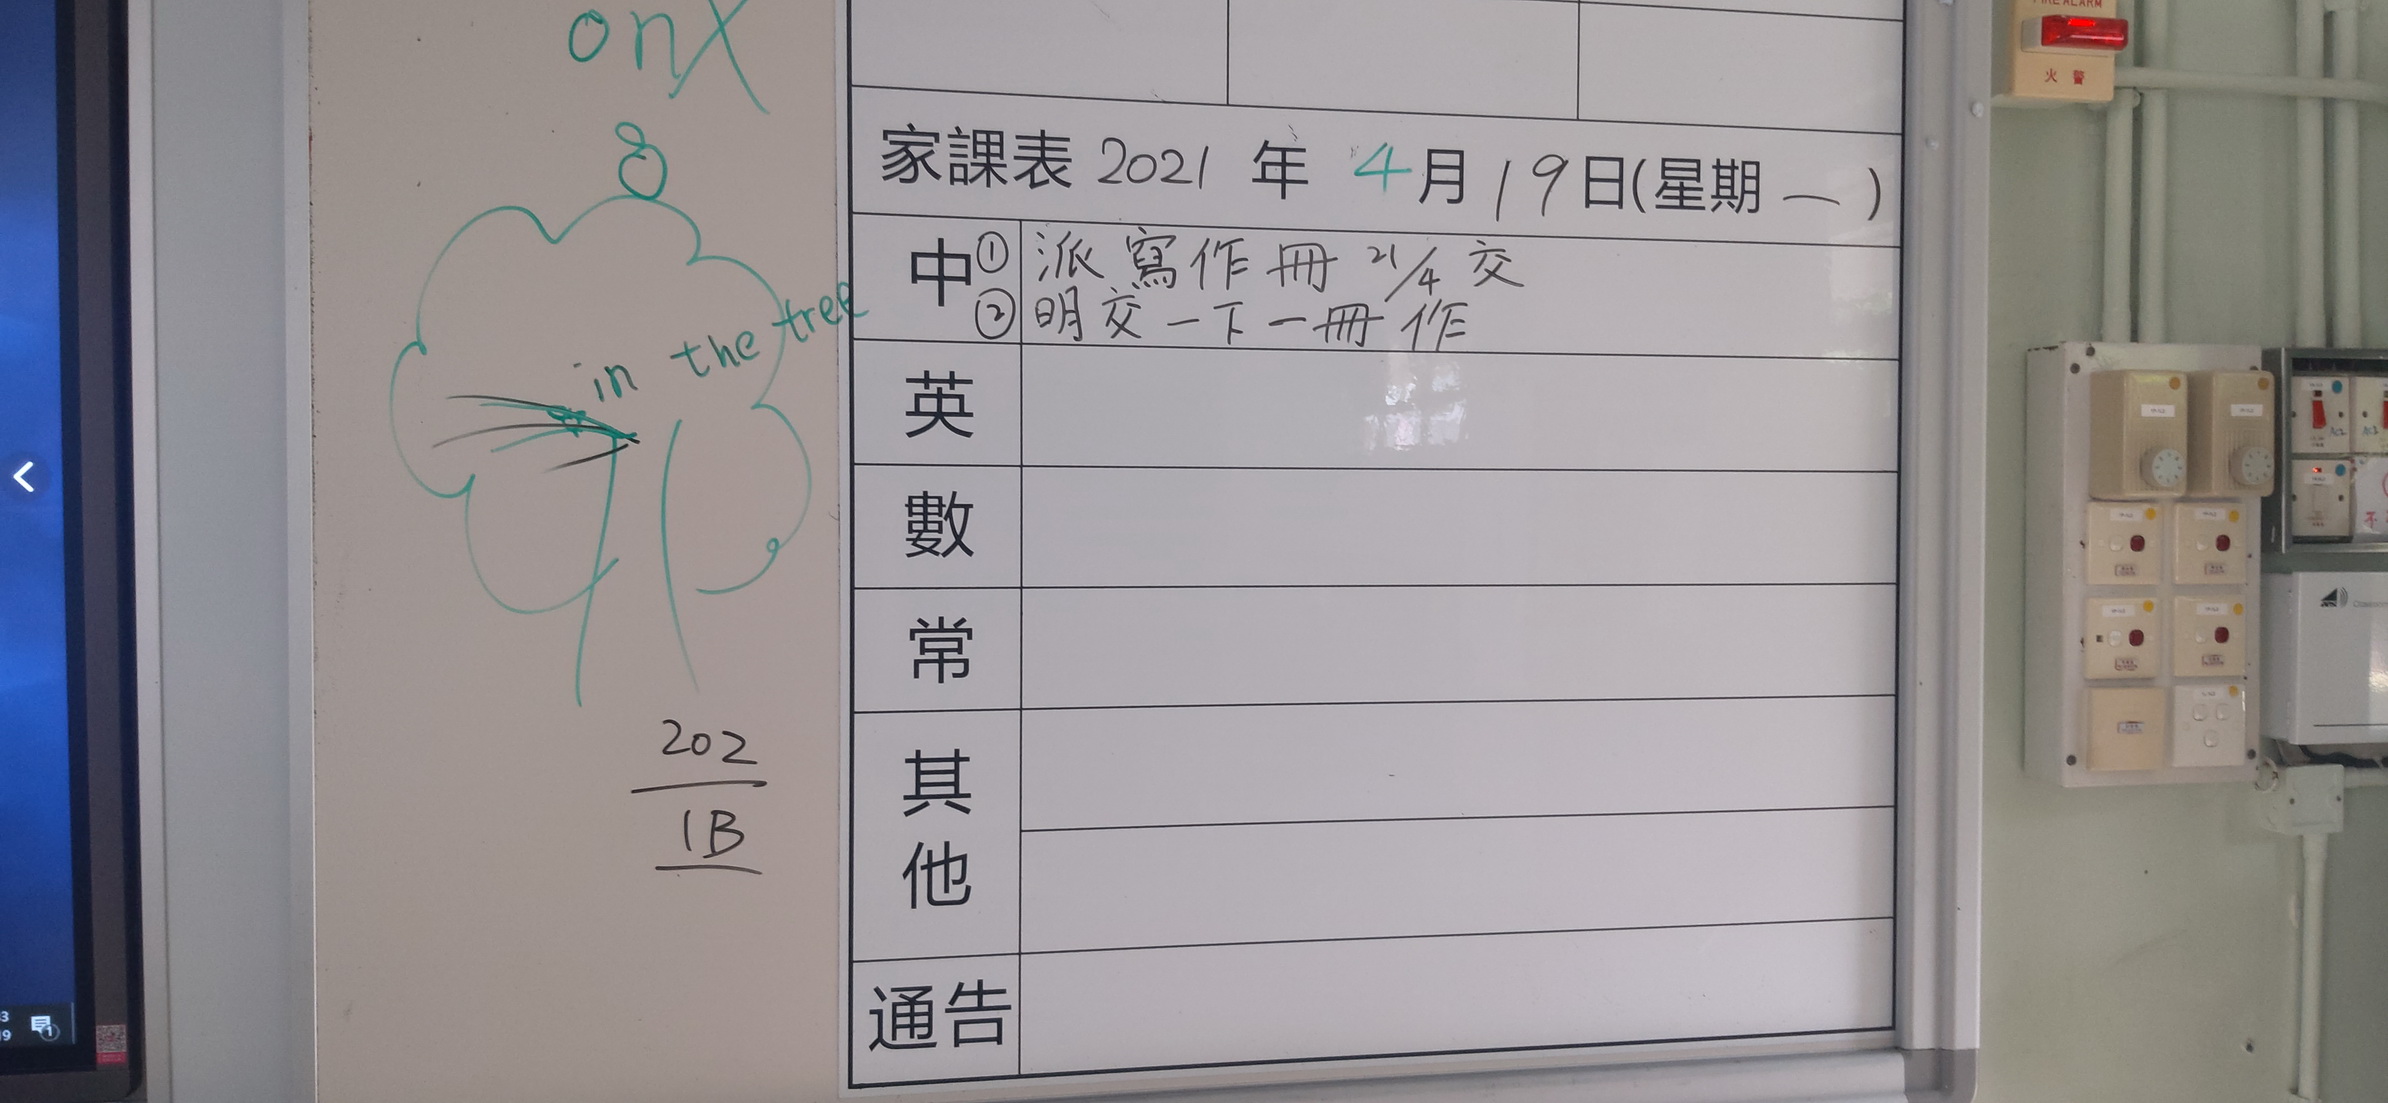 on X
in the tree
202
1B
家課表 2021 年 4月 19日(星期 一 )
中 ① 派寫作冊 21/4 交
② 明交一下一冊作
英
數
常
其他
通告
FIRE ALARM
火警